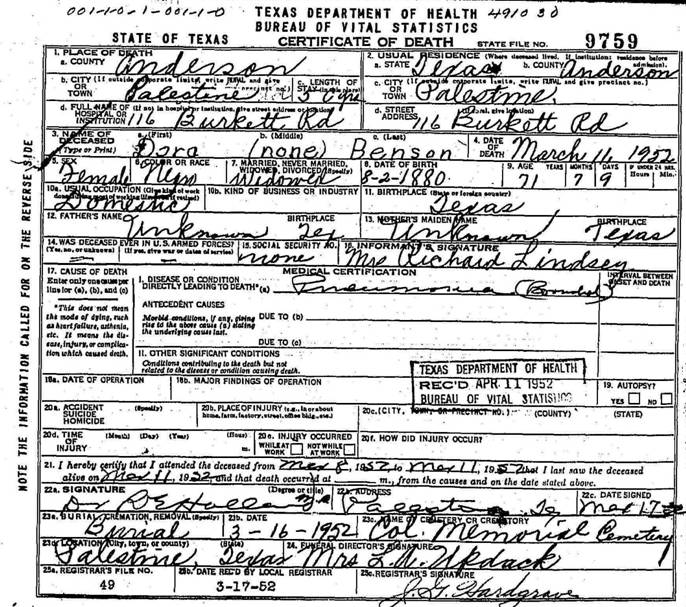 001-1-0-1-001-1-0 TEXAS DEPARTMENT OF HEALTH 491030
BUREAU OF VITAL STATISTICS
STATE OF TEXAS CERTIFICATE OF DEATH STATE FILE NO. 9759
1. PLACE OF DEATH
a. COUNTY Anderson
2. USUAL RESIDENCE (Where deceased lived. If institution: residence before admission).
a. STATE Texas b. COUNTY Anderson
b. CITY (If outside corporate limits, write RURAL and give precinct no.) OR TOWN Palestine
c. LENGTH OF STAY (in this place)
c. CITY (If outside corporate limits, write RURAL and give precinct no.) OR TOWN Palestine
d. FULL NAME OF (If not in hospital or institution, give street address or location) HOSPITAL OR INSTITUTION 116 Burkett Rd
d. STREET ADDRESS (If rural, give location) 116 Burkett Rd
3. NAME OF DECEASED (Type or Print) a. (First) Dora b. (Middle) (none) c. (Last) Benson
4. DATE OF DEATH March 11, 1952
5. SEX Female
6. COLOR OR RACE
7. MARRIED, NEVER MARRIED, WIDOWED, DIVORCED (Specify) Widowed
8. DATE OF BIRTH 8-2-1880
9. AGE YEARS MONTHS DAYS IF UNDER 24 HRS. Hours Min.
71 7 9
10a. USUAL OCCUPATION (Give kind of work done during most of working life, even if retired) Domestic
10b. KIND OF BUSINESS OR INDUSTRY
11. BIRTHPLACE (State or foreign country) Texas
12. FATHER'S NAME Unknown BIRTHPLACE Tex
13. MOTHER'S MAIDEN NAME Unknown BIRTHPLACE Texas
14. WAS DECEASED EVER IN U.S. ARMED FORCES? (Yes, no, or unknown) (If yes, give war or dates of service)
15. SOCIAL SECURITY NO. none
16. INFORMANT'S SIGNATURE Mrs Richard Lindsey
17. CAUSE OF DEATH
Enter only one cause per line for (a), (b), and (c)
*This does not mean the mode of dying, such as heart failure, asthenia, etc. It means the disease, injury, or complication which caused death.
MEDICAL CERTIFICATION
INTERVAL BETWEEN ONSET AND DEATH
I. DISEASE OR CONDITION DIRECTLY LEADING TO DEATH* (a) Pneumonia
ANTECEDENT CAUSES
Morbid conditions, if any, giving rise to the above cause (a) stating the underlying cause last.
DUE TO (b)
DUE TO (c)
II. OTHER SIGNIFICANT CONDITIONS
Conditions contributing to the death but not related to the disease or condition causing death.
TEXAS DEPARTMENT OF HEALTH
REC'D APR 11 1952
BUREAU OF VITAL STATISTICS
18a. DATE OF OPERATION
18b. MAJOR FINDINGS OF OPERATION
19. AUTOPSY? YES NO
20a. ACCIDENT SUICIDE HOMICIDE (Specify)
20b. PLACE OF INJURY (e.g., in or about home, farm, factory, street, office bldg., etc.)
20c. (CITY, TOWN, OR PRECINCT NO.) (COUNTY) (STATE)
20d. TIME OF INJURY (Month) (Day) (Year) (Hour) m.
20e. INJURY OCCURRED WHILE AT WORK NOT WHILE AT WORK
20f. HOW DID INJURY OCCUR?
21. I hereby certify that I attended the deceased from Mar 8, 1952 to Mar 11, 1952 that I last saw the deceased
alive on Mar 11, 1952 and that death occurred at m., from the causes and on the date stated above.
22a. SIGNATURE (Degree or title)
22b. ADDRESS
22c. DATE SIGNED
23a. BURIAL, CREMATION, REMOVAL (Specify) Burial
23b. DATE 3-16-1952
23c. NAME OF CEMETERY OR CREMATORY Col. Memorial Cemetery
23d. LOCATION (City, town, or county) (State) Palestine Texas
24. FUNERAL DIRECTOR'S SIGNATURE Mrs
25a. REGISTRAR'S FILE NO. 49
25b. DATE REC'D BY LOCAL REGISTRAR 3-17-52
25c. REGISTRAR'S SIGNATURE J. G. Hardgrave
NOTE THE INFORMATION CALLED FOR ON THE REVERSE SIDE